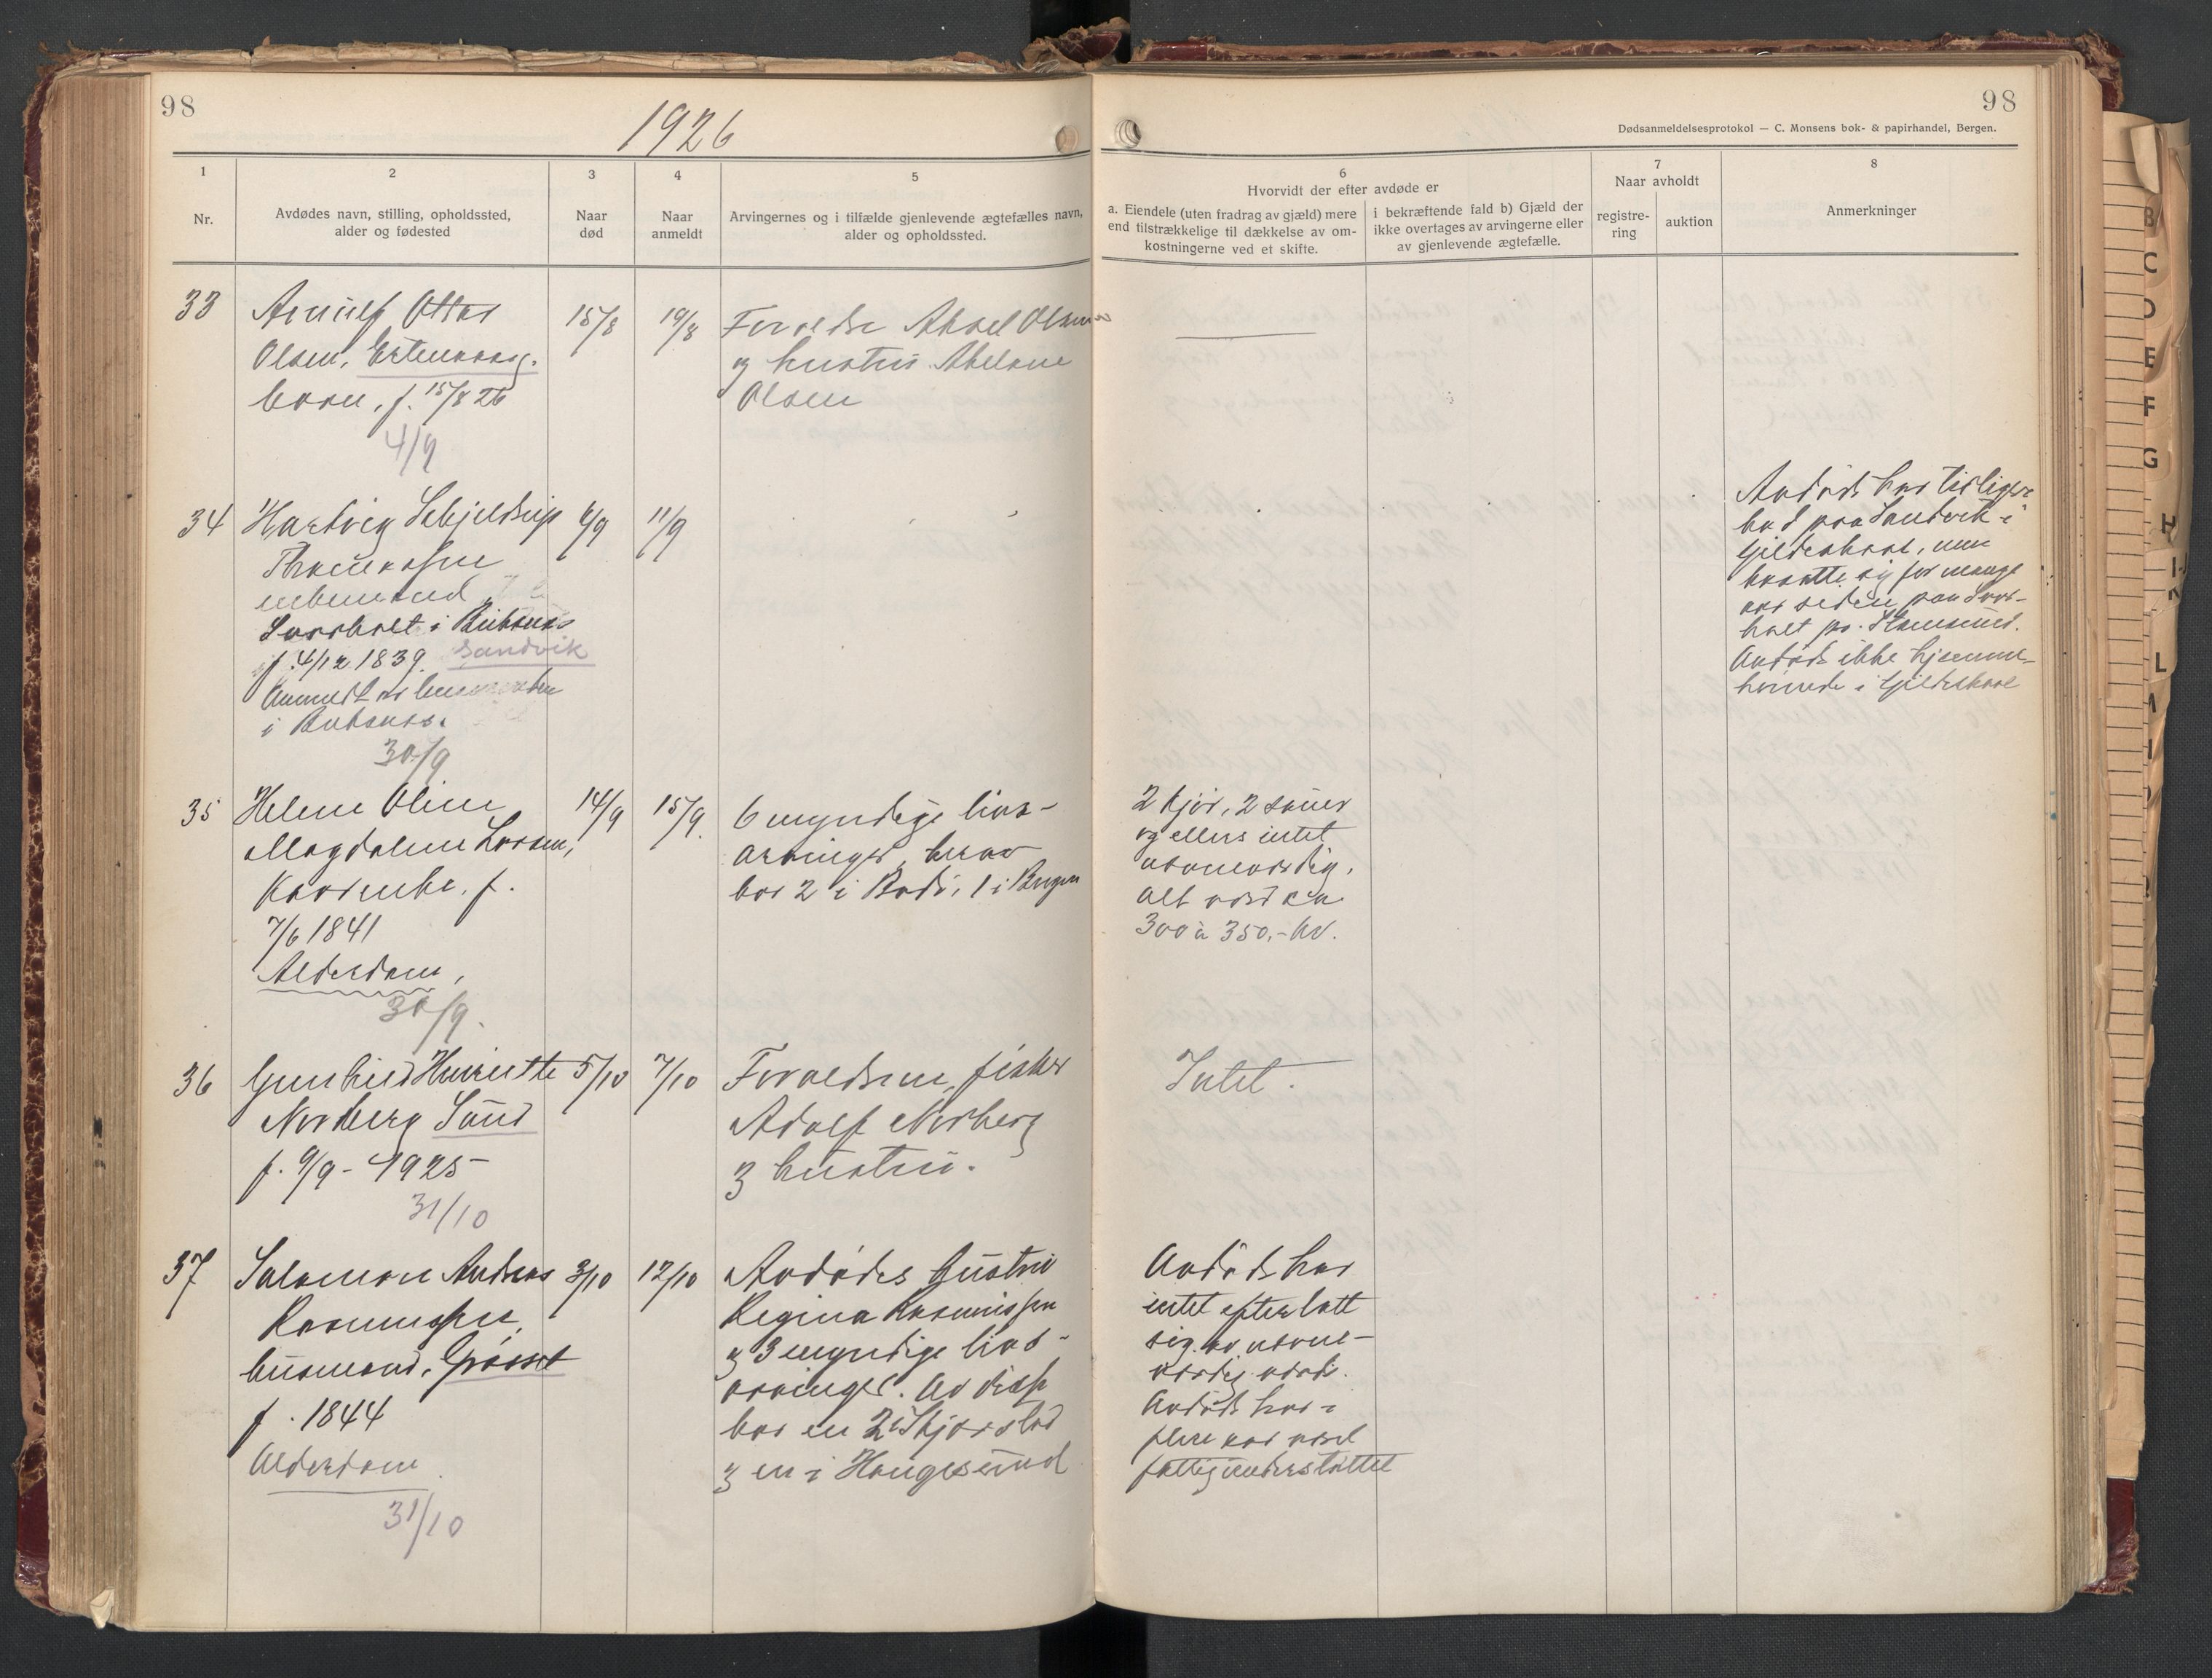 98
1926
98
Dødsanmeldelsesprotokol — C. Monsens bok- & papirhandel, Bergen.
1
Nr.
2
Avdødes navn, stilling, opholdssted,
alder og fødested
3
Naar
død
4
Naar
anmeldt
5
Arvingernes og i tilfælde gjenlevende ægtefælles navn,
alder og opholdssted.
6
Hvorvidt der efter avdøde er
a. Eiendele (uten fradrag av gjæld) mere
end tilstrækkelige til dækkelse av om-
kostningerne ved et skifte.
i bekræftende fald b) Gjæld der
ikke overtages av arvingerne eller
av gjenlevende ægtefælle.
7
Naar avholdt
registre-
ring
auktion
8
Anmerkninger
33
Arnulf Ottar
Olsen,
barn, f. 15/8 26
4/9
15/8
19/8
Foreldre Aksel Olsen
og hustru
Olsen
34
Hartvig Schjeldrup
Thomassen
enkemand
i Buksnes
f. 4/12 1839. Sandvik
Anmeldt av lensmanden
i Buksnes.
30/9
6/9
11/9
Avdøde har tidligere
bod paa Sandvik i
Gildeskaal, men
bosatte sig for mange
aar siden paa
pr. Stamsund.
Avdøde ikke hjemme-
hørende i Gildeskaal
35
Helene Oline
Magdalene Larsen,
Kaarenke, f.
7/6 1841
Alderdom,
30/9.
14/9
15/9.
6 myndige livs-
arvinger, herav
bor 2 i Bodø, 1 i Bergen
2 kjør, 2 sauer
og ellers intet
nevneverdig.
Alt verd ca
300 à 350,- kr.
36
Gunhild Henriette
Norberg Sund
f. 9/9 - 1925
31/10
5/10
7/10
Foreldrene, fisker
Adolf Norberg
og hustru.
Intet.
37
Salamon Andreas
Rasmussen,
husmand, Grøset
f. 1844
Alderdom
31/10
3/10
12/10
Avdødes hustru
Regina Rasmussen
og 3 myndige livs-
arvinger. Av disse
bor en i Skjerstad
og en i Haugesund
Avdøde har
intet efterlatt
sig av nevne-
verdig verdi.
Avdøde har i
flere aar vært
fattigunderstøttet
B
C
D
E
F
G
H
K
L
M